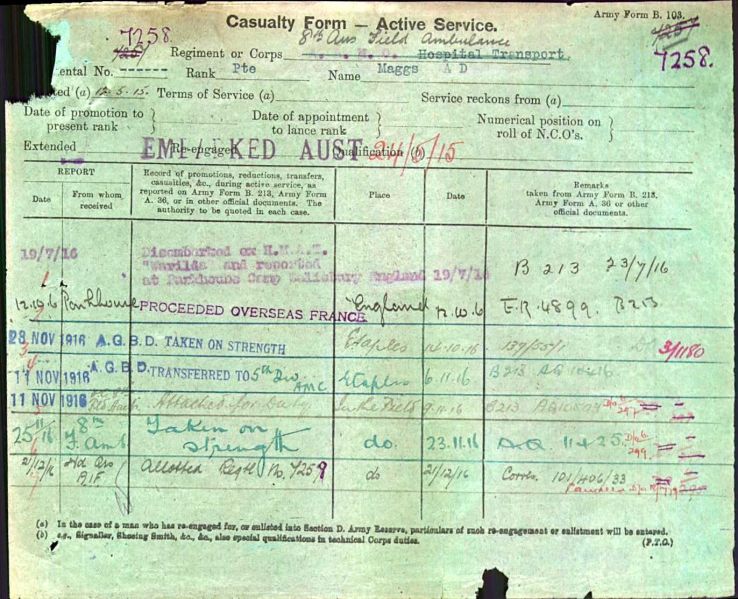 Army Form B. 103.
Casualty Form — Active Service.
7258.
7258.
8th Aus Field Ambulance
Regiment or Corps A. A. M. C. Hospital Transport.
ental No. Rank Pte Name Maggs A D
ted (a) 12.5.15. Terms of Service (a) Service reckons from (a)
Date of promotion to present rank } Date of appointment to lance rank } Numerical position on roll of N.C.O's. }
Extended Re-engaged Qualification (b)
EMBARKED AUST 24/5/15
REPORT
Date From whom received
Record of promotions, reductions, transfers, casualties, &c., during active service, as reported on Army Form B. 213, Army Form A. 36, or in other official documents. The authority to be quoted in each case.
Place
Date
Remarks taken from Army Form B. 213, Army Form A. 36 or other official documents.
19/7/16 Disembarked ex H.M.A.T. "Warilda" and reported at Parkhouse Camp Salisbury England 19/7/16 B 213 23/7/16
Parkhouse PROCEEDED OVERSEAS FRANCE England E.R. 4899. B213
28 NOV 1916 A.G.B.D. TAKEN ON STRENGTH Etaples 14.10.16 3/1180
11 NOV 1916 A.G.B.D. TRANSFERRED TO 5th Div AMC Etaples 6.11.16 B213
11 NOV 1916 Attached for Duty In the Field 9.11.16 B213
25/11/16 8th F. Amb Taken on strength do. 23.11.16 A.Q 11425.
21/12/16 AIF Allotted Regtl No. 7258 do 21/12/16 Corres. 101/406/33
(a) In the case of a man who has re-engaged for, or enlisted into Section D. Army Reserve, particulars of such re-engagement or enlistment will be entered.
(b) e.g., Signaller, Shoeing Smith, &c., &c., also special qualifications in technical Corps duties.
(P.T.O.)